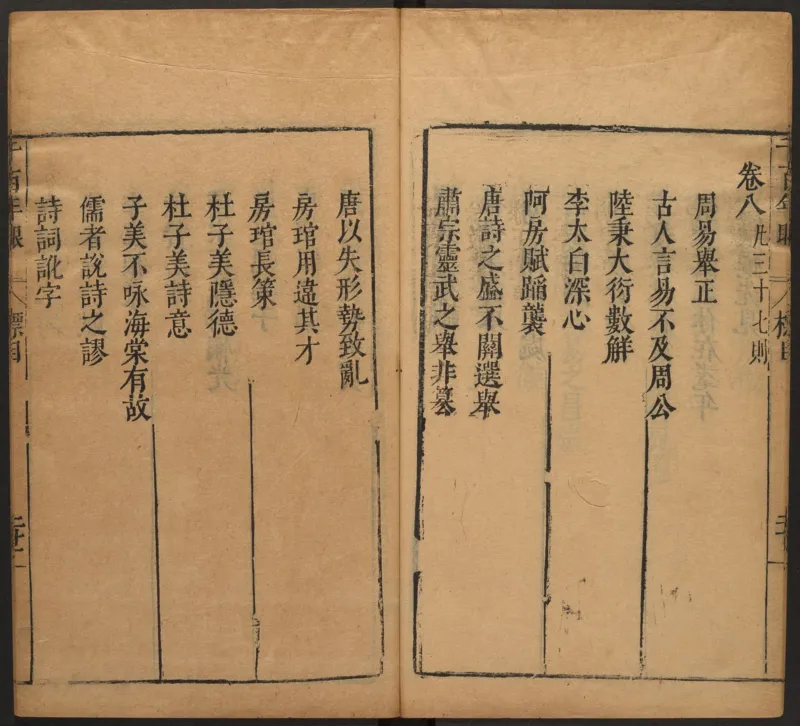 卷八 凡三十七則
周易舉正
古人言易不及周公
陸秉大衍數解
李太白深心
阿房賦蹈襲
唐詩之盛不關選舉
肅宗靈武之舉非篡
唐以失形勢致亂
房琯用違其才
房琯長策
杜子美隱德
杜子美詩意
子美不咏海棠有故
儒者說詩之謬
詩詞訛字
千百年眼 八標目